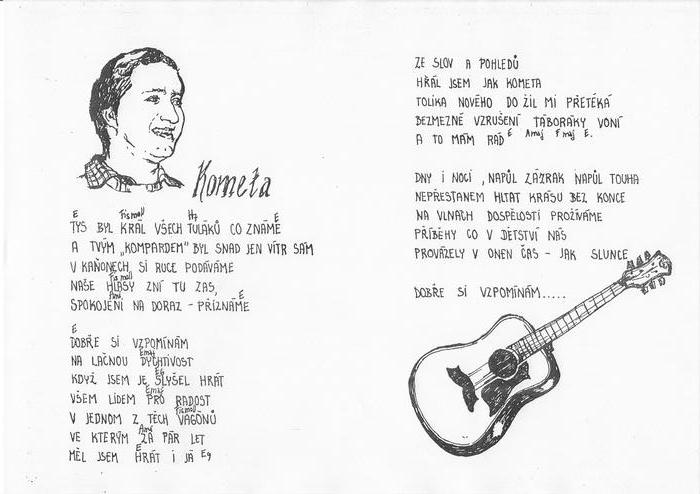 Kometa
E Fismoll H7 E
TYS BYL KRÁL VŠECH TULÁKŮ CO ZNÁME
A TVÝM „KOMPARDEM" BYL SNAD JEN VÍTR SÁM
V KAŇONECH SI RUCE PODÁVÁME
Fismoll
NAŠE HLASY ZNÍ TU ZAS,
E
SPOKOJENI NA DORAZ - PŘIZNÁME
E
DOBŘE SI VZPOMÍNÁM
Emaj
NA LAČNOU DYCHTIVOST
E9
KDYŽ JSEM JE SLYŠEL HRÁT
Emaj
VŠEM LIDEM PRO RADOST
Fismoll
V JEDNOM Z TĚCH VAGÓNŮ
Ami
VE KTERÝM ZA PÁR LET
E
MĚL JSEM HRÁT I JÁ E9
ZE SLOV A POHLEDŮ
HŘÁL JSEM JAK KOMETA
TOLIKA NOVÉHO DO ŽIL MI PŘETÉKÁ
BEZMEZNÉ VZRUŠENÍ TÁBORÁKY VONÍ
A TO MÁM RÁD E Amaj Fmaj E.
DNY I NOCÍ, NAPŮL ZÁZRAK NAPŮL TOUHA
NEPŘESTANEM HLTAT KRÁSU BEZ KONCE
NA VLNÁCH DOSPĚLOSTI PROŽÍVÁME
PŘÍBĚHY CO V DĚTSTVÍ NÁS
PROVÁZELY V ONEN ČAS - JAK SLUNCE
DOBŘE SI VZPOMÍNÁM.....